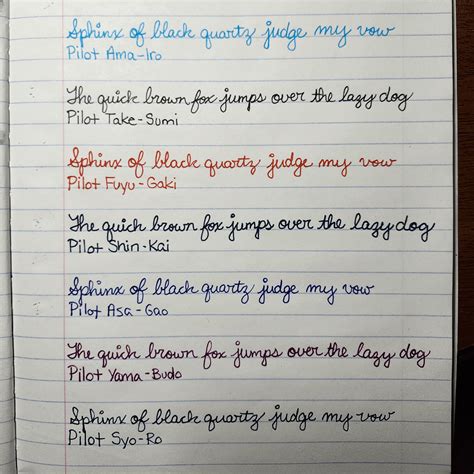 Sphinx of black quartz judge my vow
Pilot Ama-Iro
The quick brown fox jumps over the lazy dog
Pilot Take-Sumi
Sphinx of black quartz judge my vow
Pilot Fuyu-Gaki
The quick brown fox jumps over the lazy dog
Pilot Shin-Kai
Sphinx of black quartz judge my vow
Pilot Asa-Gao
The quick brown fox jumps over the lazy dog
Pilot Yama-Budo
Sphinx of black quartz judge my vow
Pilot Syo-Ro